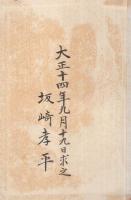 大正十四年九月十九日求之
坂崎孝平